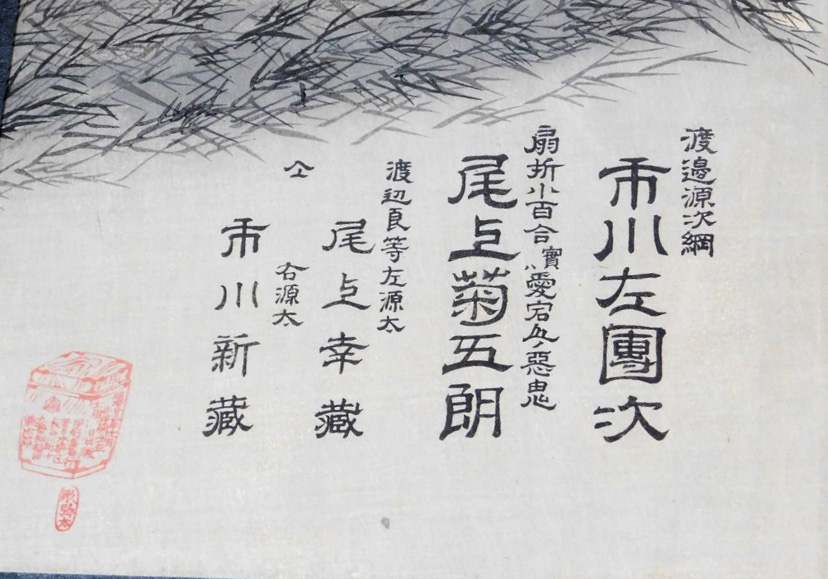 渡邉源次綱
市川左團次
扇折小百合実ハ愛宕山ノ惡鬼
尾上菊五郎
渡辺良等左源太
尾上幸藏
仝
右源太
市川新藏